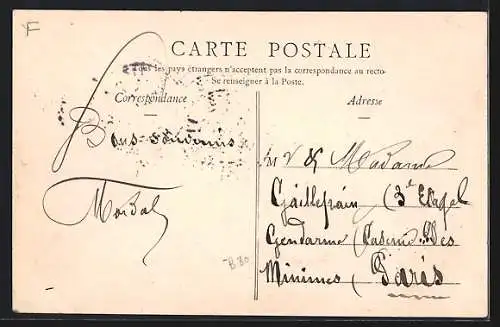 F
CARTE POSTALE
Tous les pays étrangers n'acceptent pas la correspondance au recto
Se renseigner à la Poste.
Correspondance
Adresse
Bons
M r & Madame
(3e Etage
Gendarme (Caserne Des
Minimes (Paris
B 80